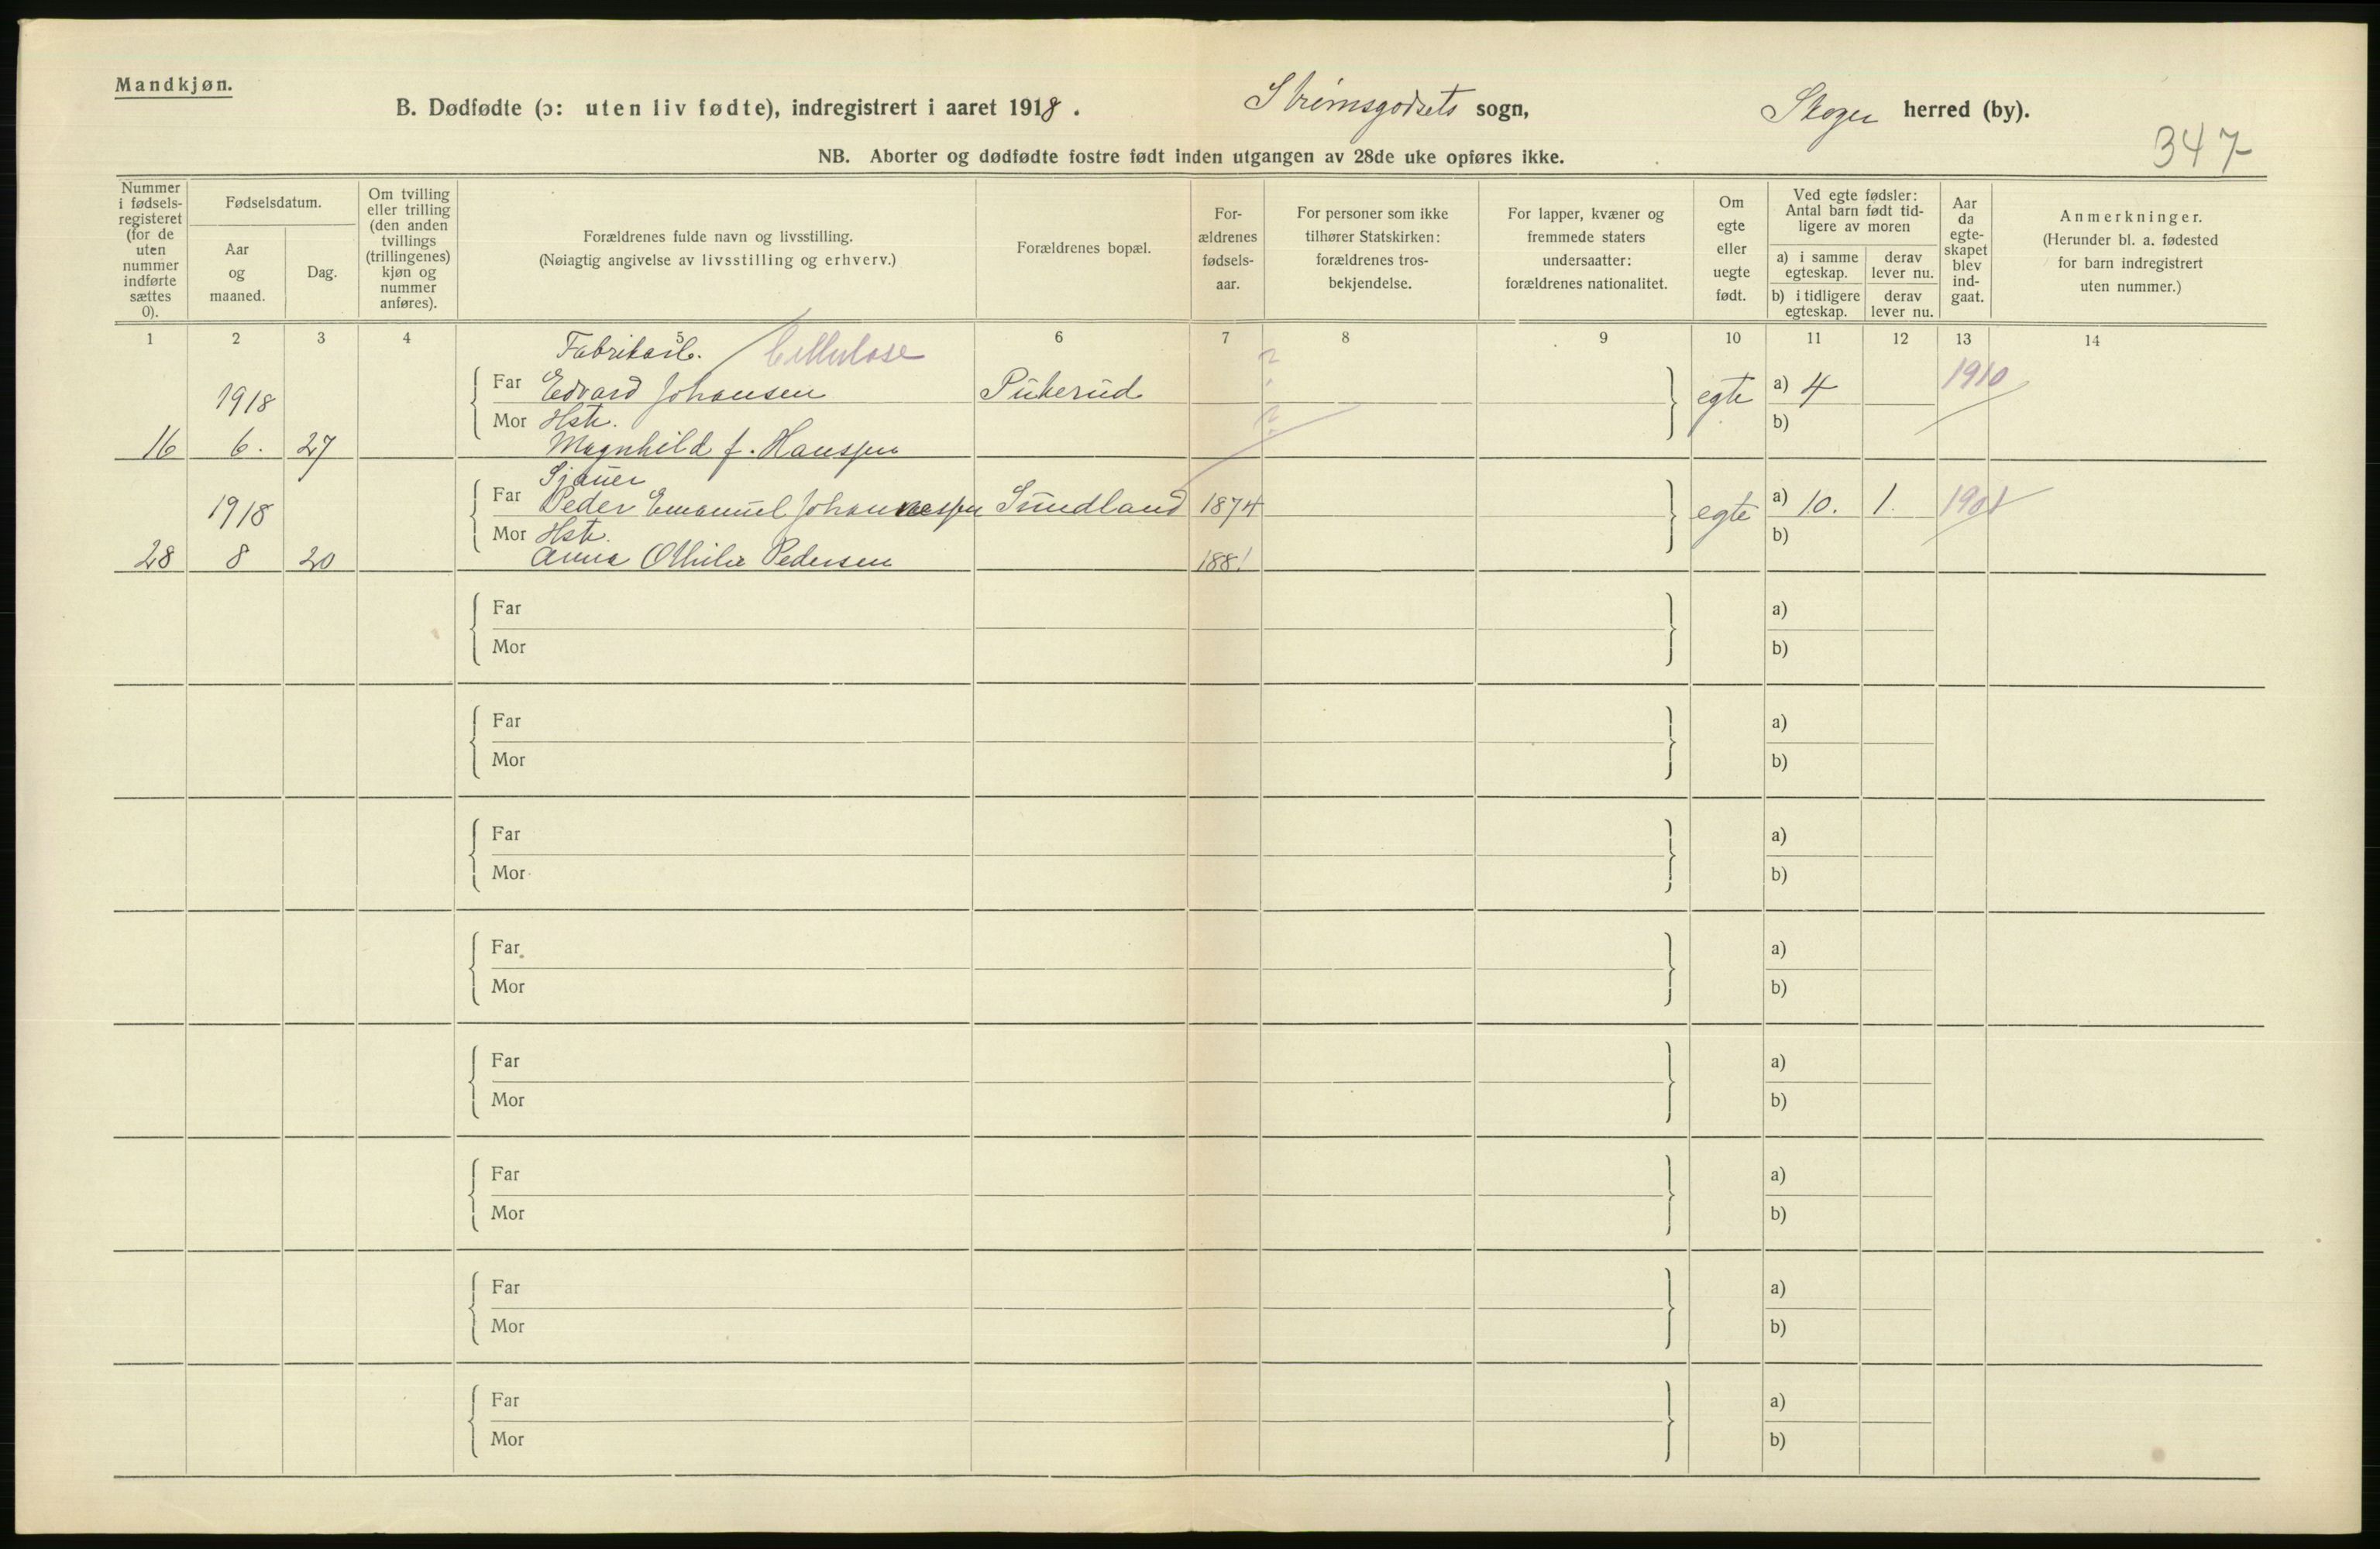 Mandkjøn.
B. Dødfødte (ɔ: uten liv fødte), indregistrert i aaret 1918. Strømsgodsets sogn, Skoger herred (by).
347
NB. Aborter og dødfødte fostre født inden utgangen av 28de uke opføres ikke.
Nummer i fødsels-registeret (for de uten nummer indførte sættes 0).
Fødselsdatum.
Aar og maaned.
Dag.
Om tvilling eller trilling (den anden tvillings (trillingenes) kjøn og nummer anføres).
Forældrenes fulde navn og livsstilling.
(Nøiagtig angivelse av livsstilling og erhverv.)
Forældrenes bopæl.
For-ældrenes fødsels-aar.
For personer som ikke tilhører Statskirken: forældrenes tros-bekjendelse.
For lapper, kvæner og fremmede staters undersaatter: forældrenes nationalitet.
Om egte eller uegte født.
Ved egte fødsler: Antal barn født tid-ligere av moren
a) i samme egteskap.
derav lever nu.
b) i tidligere egteskap.
derav lever nu.
Aar da egte-skapet blev ind-gaat.
Anmerkninger.
(Herunder bl. a. fødested for barn indregistrert uten nummer.)
1 2 3 4 5 6 7 8 9 10 11 12 13 14
Fabrikarb. Cellulose
Far Edvard Johansen Pukerud ? egte a) 4 1910
1918
Mor Hstr. ? b)
16 6. 27 Magnhild f. Hanssen
Sjauer
Far Peder Emanuel Johannessen Sundland 1874 egte a) 10. 1. 1901
1918
Mor Hstr. b)
28 8 20 Anna Othilie Pedersen 1881
Far a)
Mor b)
Far a)
Mor b)
Far a)
Mor b)
Far a)
Mor b)
Far a)
Mor b)
Far a)
Mor b)
Far a)
Mor b)
Far a)
Mor b)